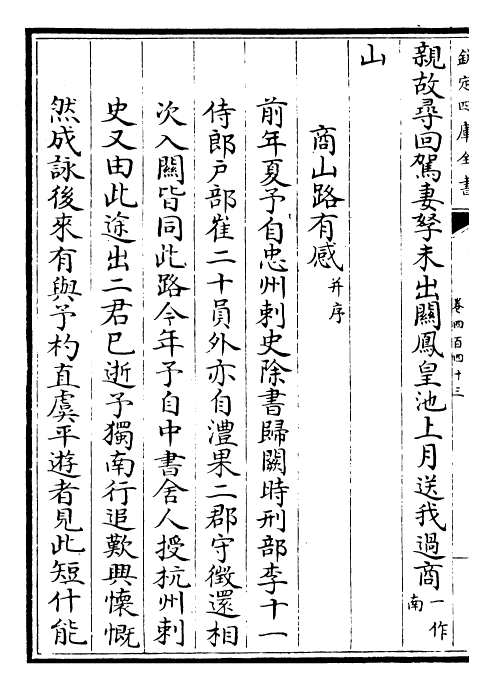 欽定四庫全書
卷四百四十三
親故尋回駕妻孥未出關鳳皇池上月送我過商一作南
山
商山路有感并序
前年夏予自忠州刺史除書歸闕時刑部李十一
侍郎戶部崔二十員外亦自澧果二郡守徵還相
次入關皆同此路今年予自中書舍人授杭州刺
史又由此途出二君已逝予獨南行追歎興懷慨
然成詠後來有與予杓直虞平遊者見此短什能